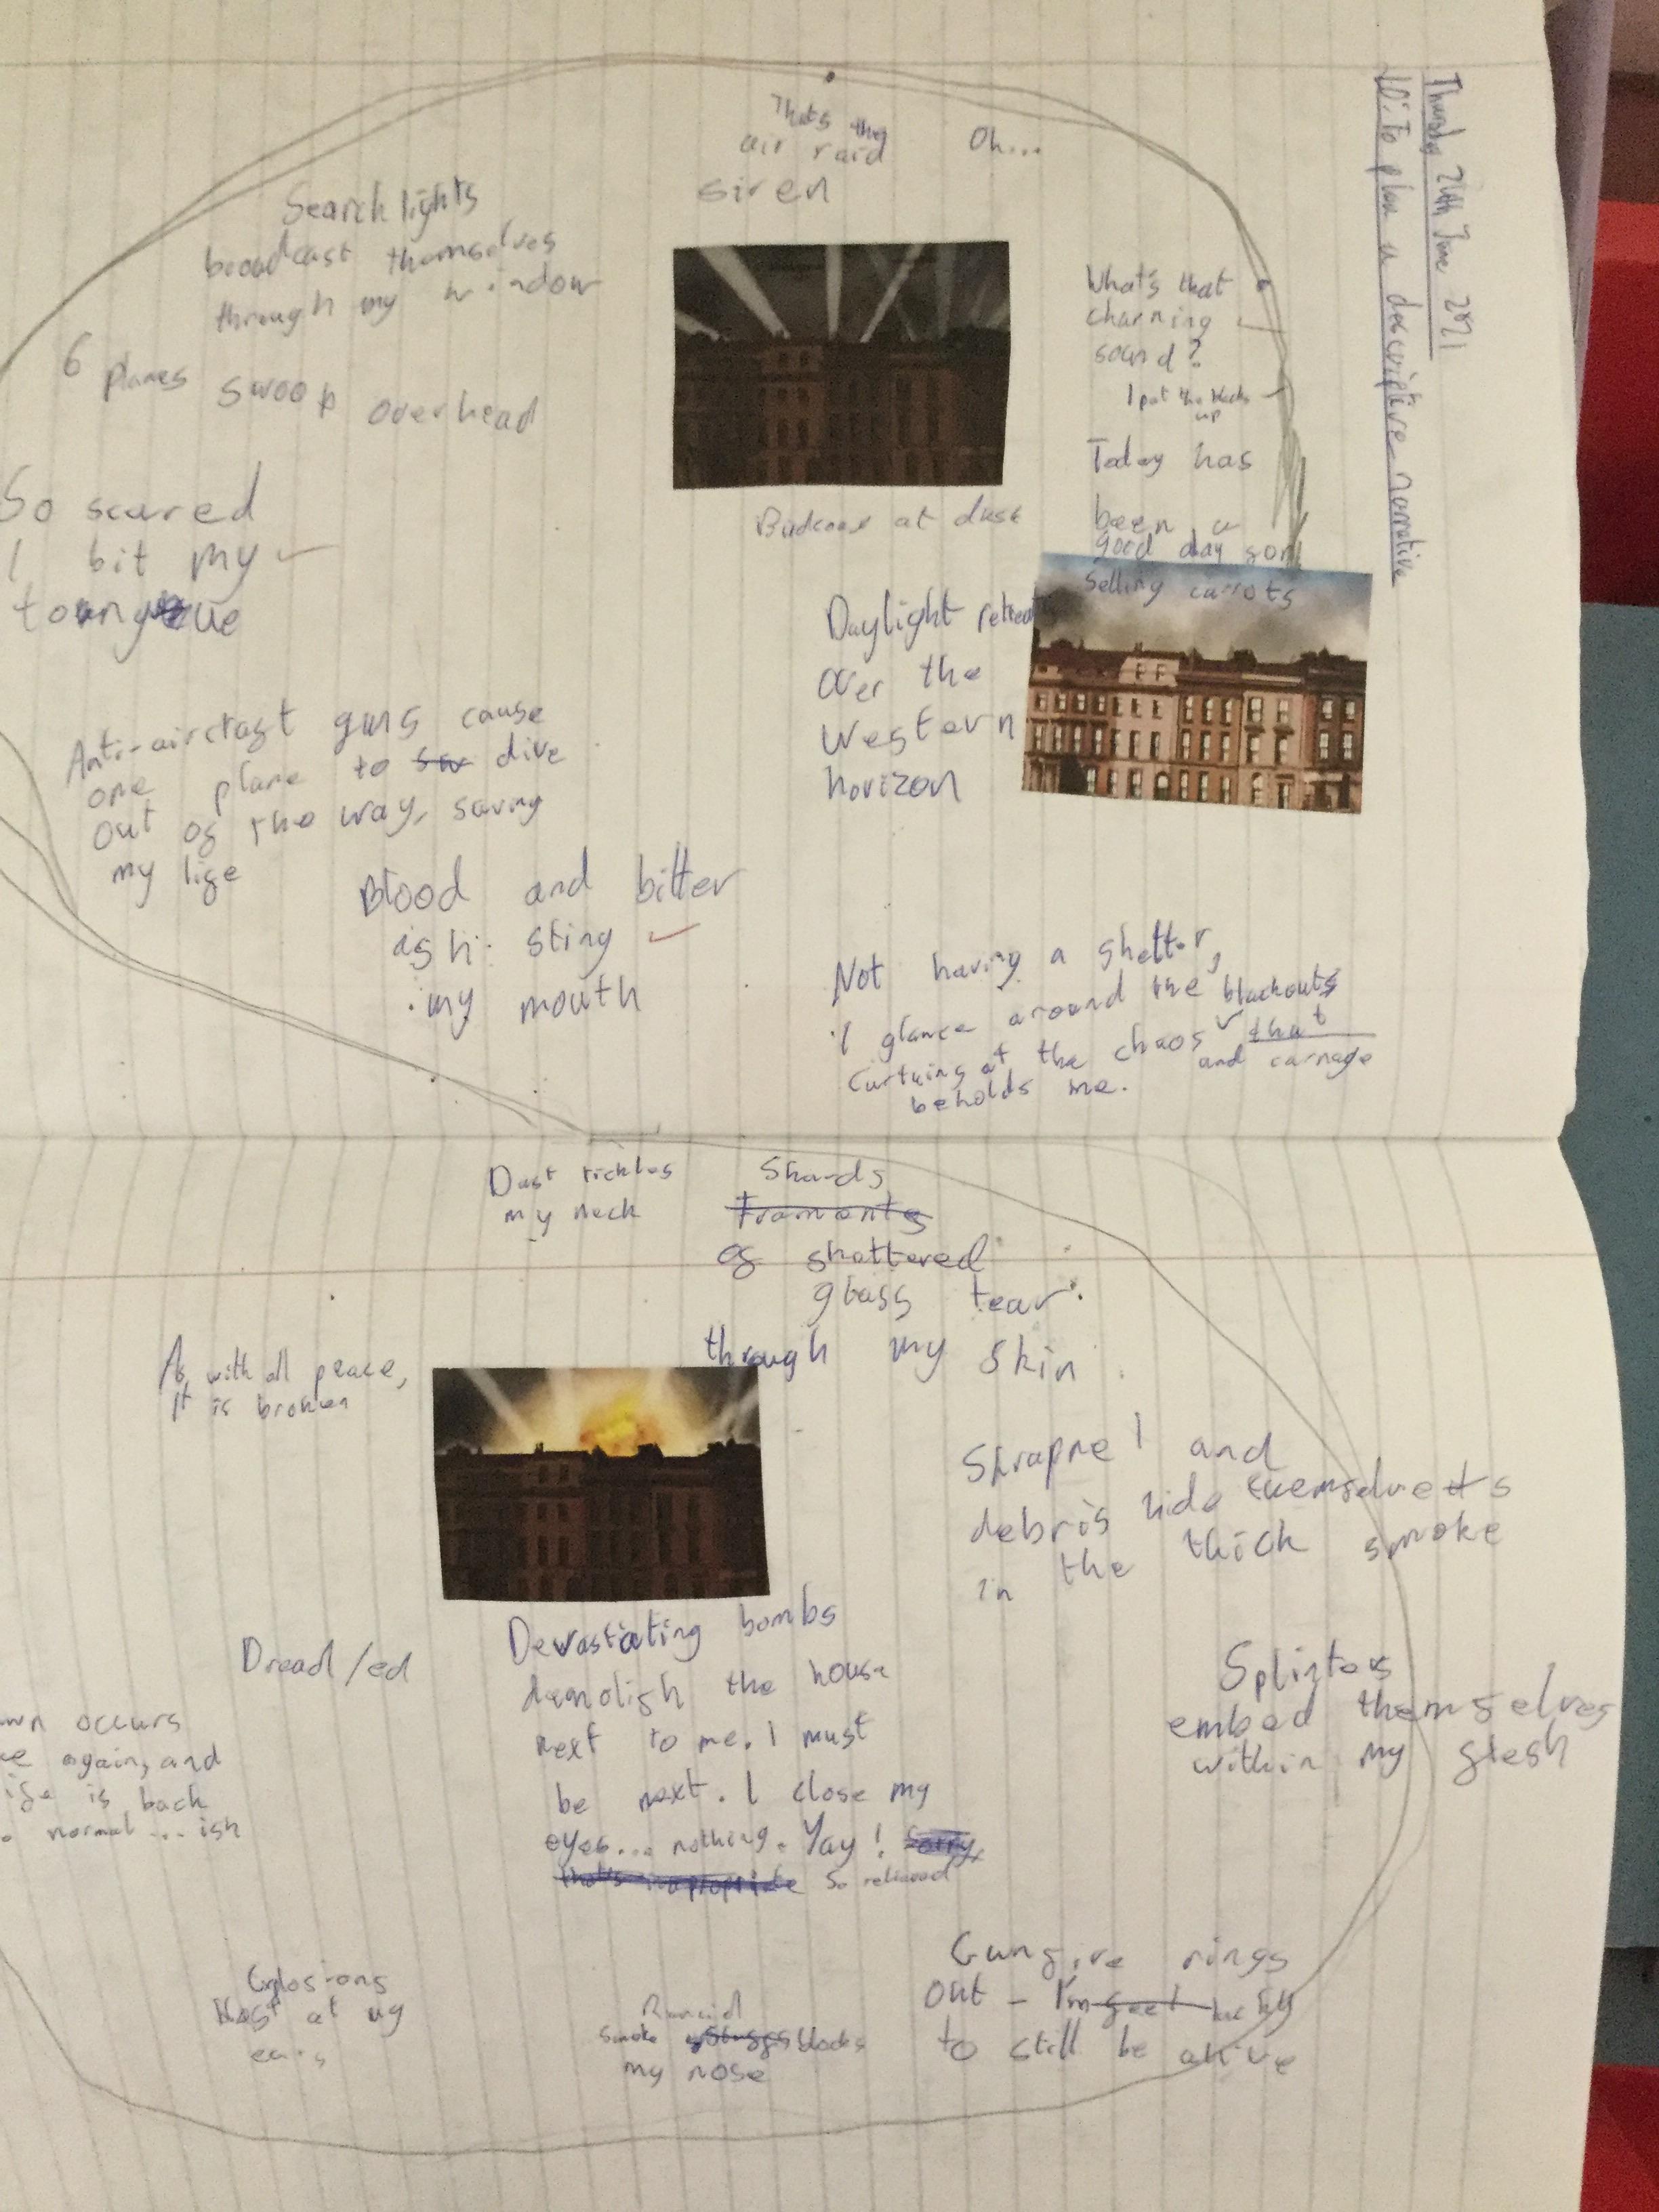 Thursday 24th June 2021
LO: To plan a descriptive narrative
Thats the
air raid
siren
Oh...
Search lights
broadcast themselves
through my window
6 planes swoop overhead
What's that
charming
sound?
I put the blacks
up
Today has
been a
good day son
selling carrots
at dusk
So scared
I bit my
toungue
Daylight
over the
western
horizon
Anti-aircraft guns cause
one plane to sw dive
out of the way, saving
my life
Blood and bitter
ash sting
my mouth
Not having a shelter,
I glance around the blackouts
curtains at the chaos that
and carnage
beholds me.
Dust tickles
my neck
Shards
Framents
of shattered
glass tear
through my skin
As with all peace,
it is broken
Shrapnel and
debris hide themselves
in the thick smoke
Dread/ed
Devastating bombs
demolish the house
next to me. I must
be next. I close my
eyes... nothing. Yay! Sorry,
that's inapropriate So relieved
Splinters
embed themselves
within my flesh
wn occurs
ce again, and
ife is back
o normal...ish
Explosions
at my
ears
Rancid
smoke blocks
my nose
Gunfire rings
out - I'm lucky
to still be alive